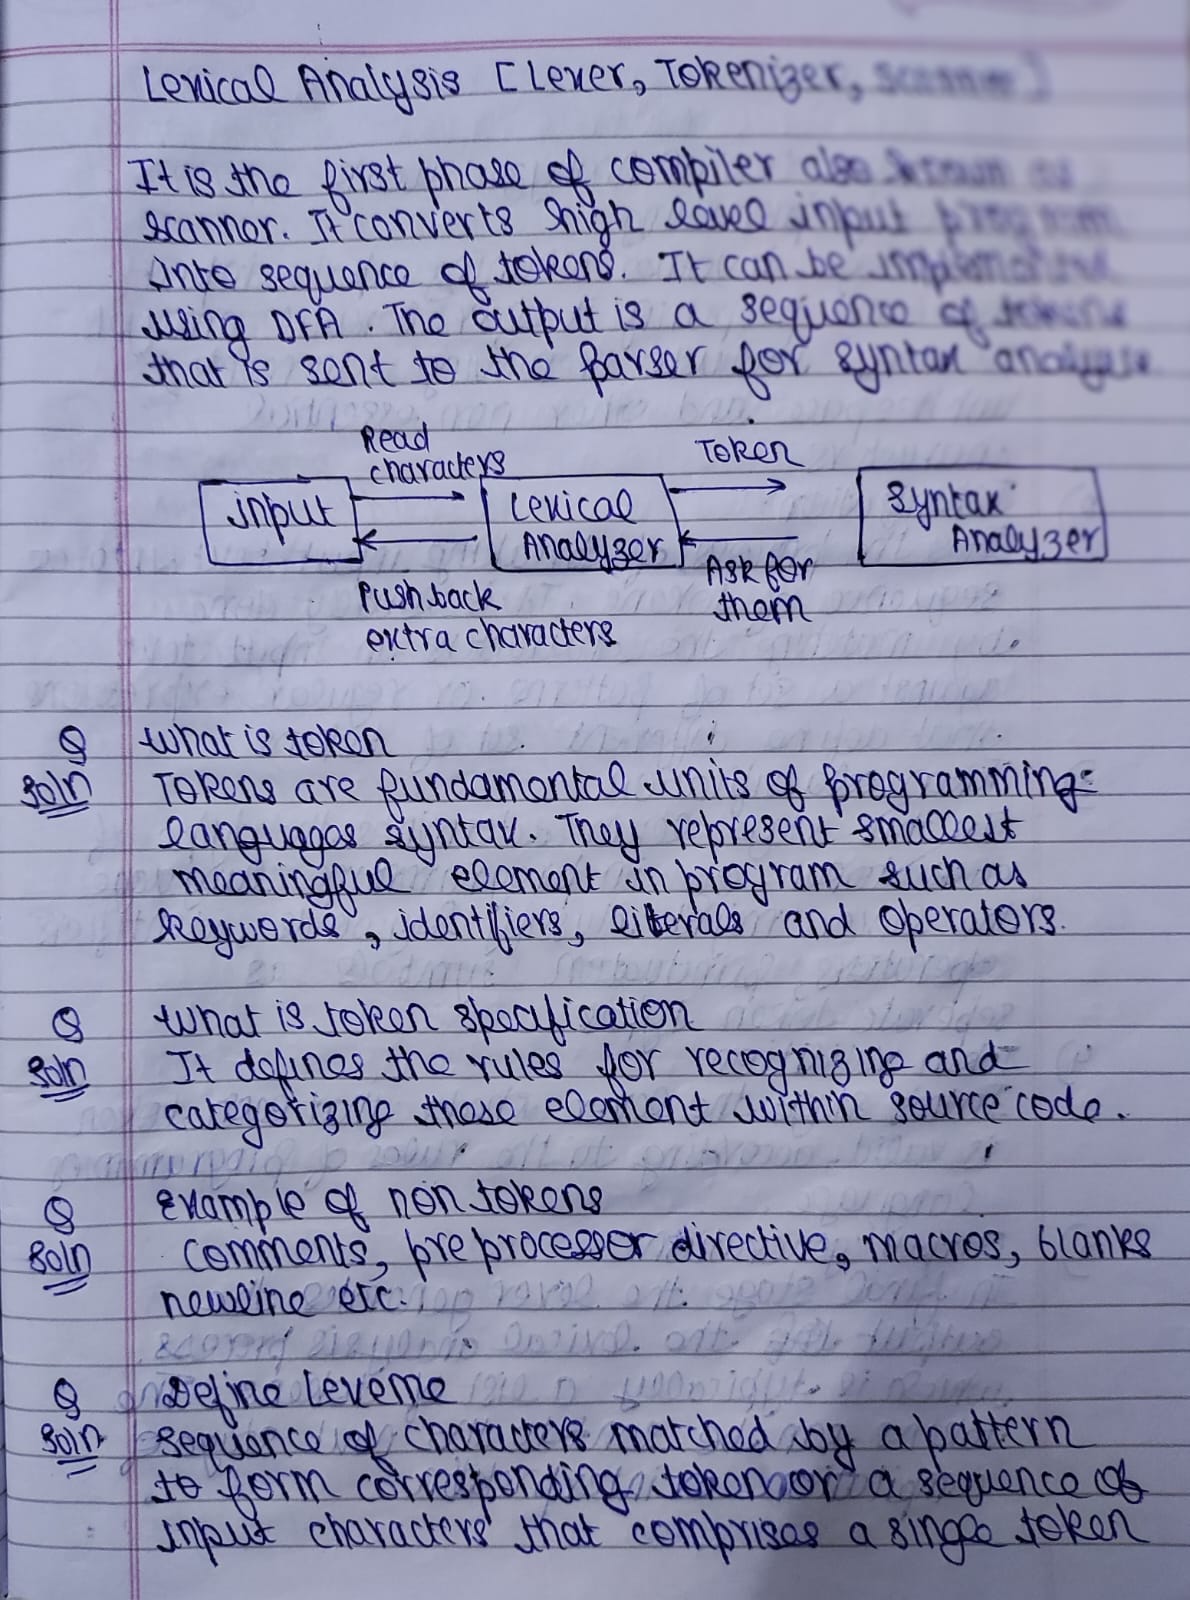 Lexical Analysis [Lexer, Tokenizer, Scanner]
It is the first phase of compiler also known as
scanner. It converts high level input program
into sequence of tokens. It can be implemented
using DFA. The output is a sequence of tokens
that is sent to the parser for syntax analysis
Read
characters
Token
input
Lexical
Analyzer
Syntax
Analyzer
Push back
extra characters
Ask for
them
Q What is token
Soln Tokens are fundamental units of programming
languages syntax. They represent smallest
meaningful element in program such as
keywords, identifiers, literals and operators.
Q What is token specification
Soln It defines the rules for recognizing and
categorizing these element within source code.
Q Example of non tokens
Soln Comments, preprocessor directive, macros, blanks
newline etc.
Q Define Lexeme
Soln Sequence of characters matched by a pattern
to form corresponding token or a sequence of
input characters that comprises a single token